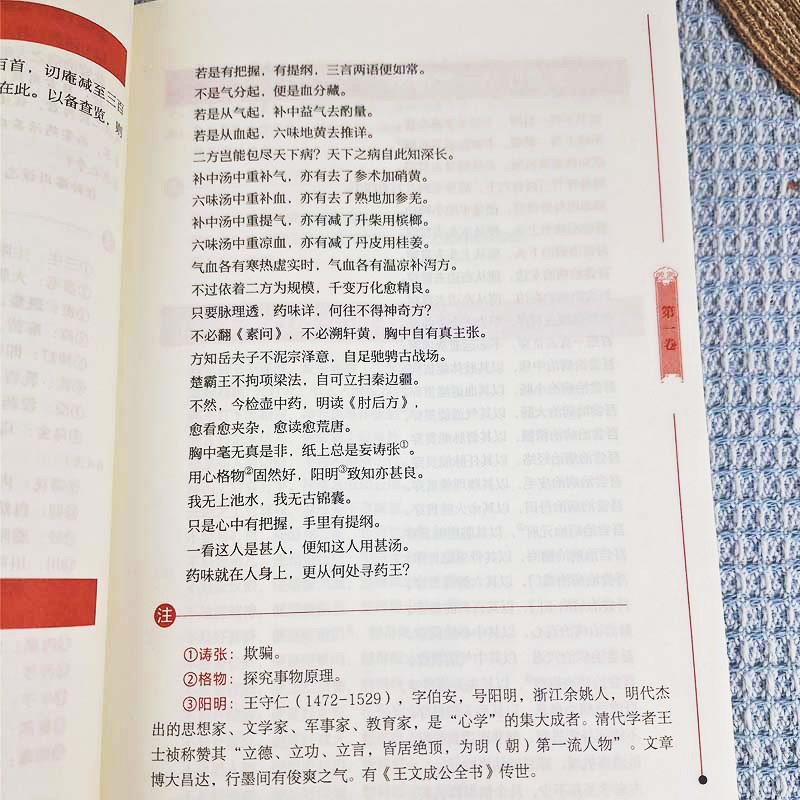 百首，讱庵减至三百
在此。以备查览，则
若是有把握，有提纲，三言两语便如常。
不是气分起，便是血分藏。
若是从气起，补中益气去酌量。
若是从血起，六味地黄去推详。
二方岂能包尽天下病？天下之病自此知深长。
补中汤中重补气，亦有去了参术加硝黄。
六味汤中重补血，亦有去了熟地加参羌。
补中汤中重提气，亦有减了升柴用槟榔。
六味汤中重凉血，亦有减了丹皮用桂姜。
气血各有寒热虚实时，气血各有温凉补泻方。
不过依着二方为规模，千变万化愈精良。
只要脉理透，药味详，何往不得神奇方？
不必翻《素问》，不必溯轩黄，胸中自有真主张。
方知岳夫子不泥宗泽意，自足驰骋古战场。
楚霸王不拘项梁法，自可立扫秦边疆。
不然，今检壶中药，明读《肘后方》，
愈看愈夹杂，愈读愈荒唐。
胸中毫无真是非，纸上总是妄诪张①。
用心格物②固然好，阳明③致知亦甚良。
我无上池水，我无古锦囊。
只是心中有把握，手里有提纲。
一看这人是甚人，便知这人用甚汤。
药味就在人身上，更从何处寻药王？
第一卷
注
①诪张：欺骗。
②格物：探究事物原理。
③阳明：王守仁（1472-1529），字伯安，号阳明，浙江余姚人，明代杰
出的思想家、文学家、军事家、教育家，是“心学”的集大成者。清代学者王
士祯称赞其“立德、立功、立言，皆居绝顶，为明（朝）第一流人物”。文章
博大昌达，行墨间有俊爽之气。有《王文成公全书》传世。